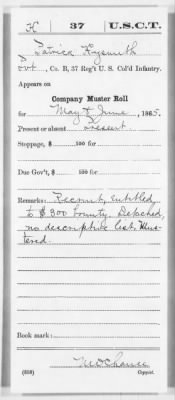 H 37 U.S.C.T.
Patrick Hysmith
Pvt, Co. B, 37 Reg't U. S. Col'd Infantry.
Appears on
Company Muster Roll
for May & June, 1865.
Present or absent Present
Stoppage, $ 100 for
Due Gov't, $ 100 for
Remarks: Recruit, entitled
to $300 bounty. Detached,
no descriptive list. Mus-
tered.
Book mark:
(858) Copyist.